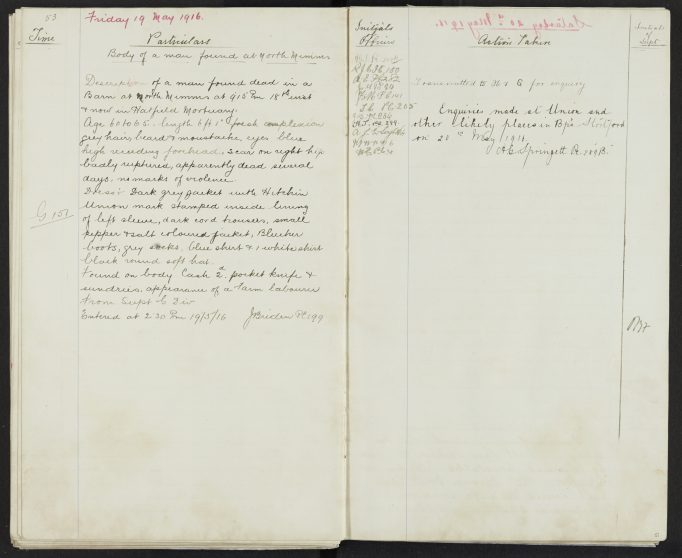 53
Friday 19 May 1916.
Time
Particulars
Body of a man found at North Mimms
Description of a man found dead in a
Barn at North Mimms at 9 15 Pm 18th inst
& now in Hatfield Mortuary.
Age 60 to 65. length 6 ft 1" fresh complexion
grey hair beard & moustache, eyes blue
high receding forehead, scar on right hip
badly ruptured, apparently dead several
days. no marks of violence
Dress:- Dark grey jacket with Hitchin
Union mark stamped inside lining
of left sleeve, dark cord trousers, small
pepper & salt coloured jacket, Blucher
boots, grey socks, blue shirt & 1 white shirt
black round soft hat.
G 151
Found on body Cash 2d. pocket knife &
sundries. appearance of a Farm labourer
From Supt G Div
Entered at 2 30 Pm 19/5/16 J Briden PC 199
Initials
Officers
PC 205
Saturday 20th May 1916.
Action Taken
Initials
Supt
Transmitted to and for enquiry
Enquiries made at Union and
other likely places in Bp's Stortford
on 20th May 1916.
Springett Pc